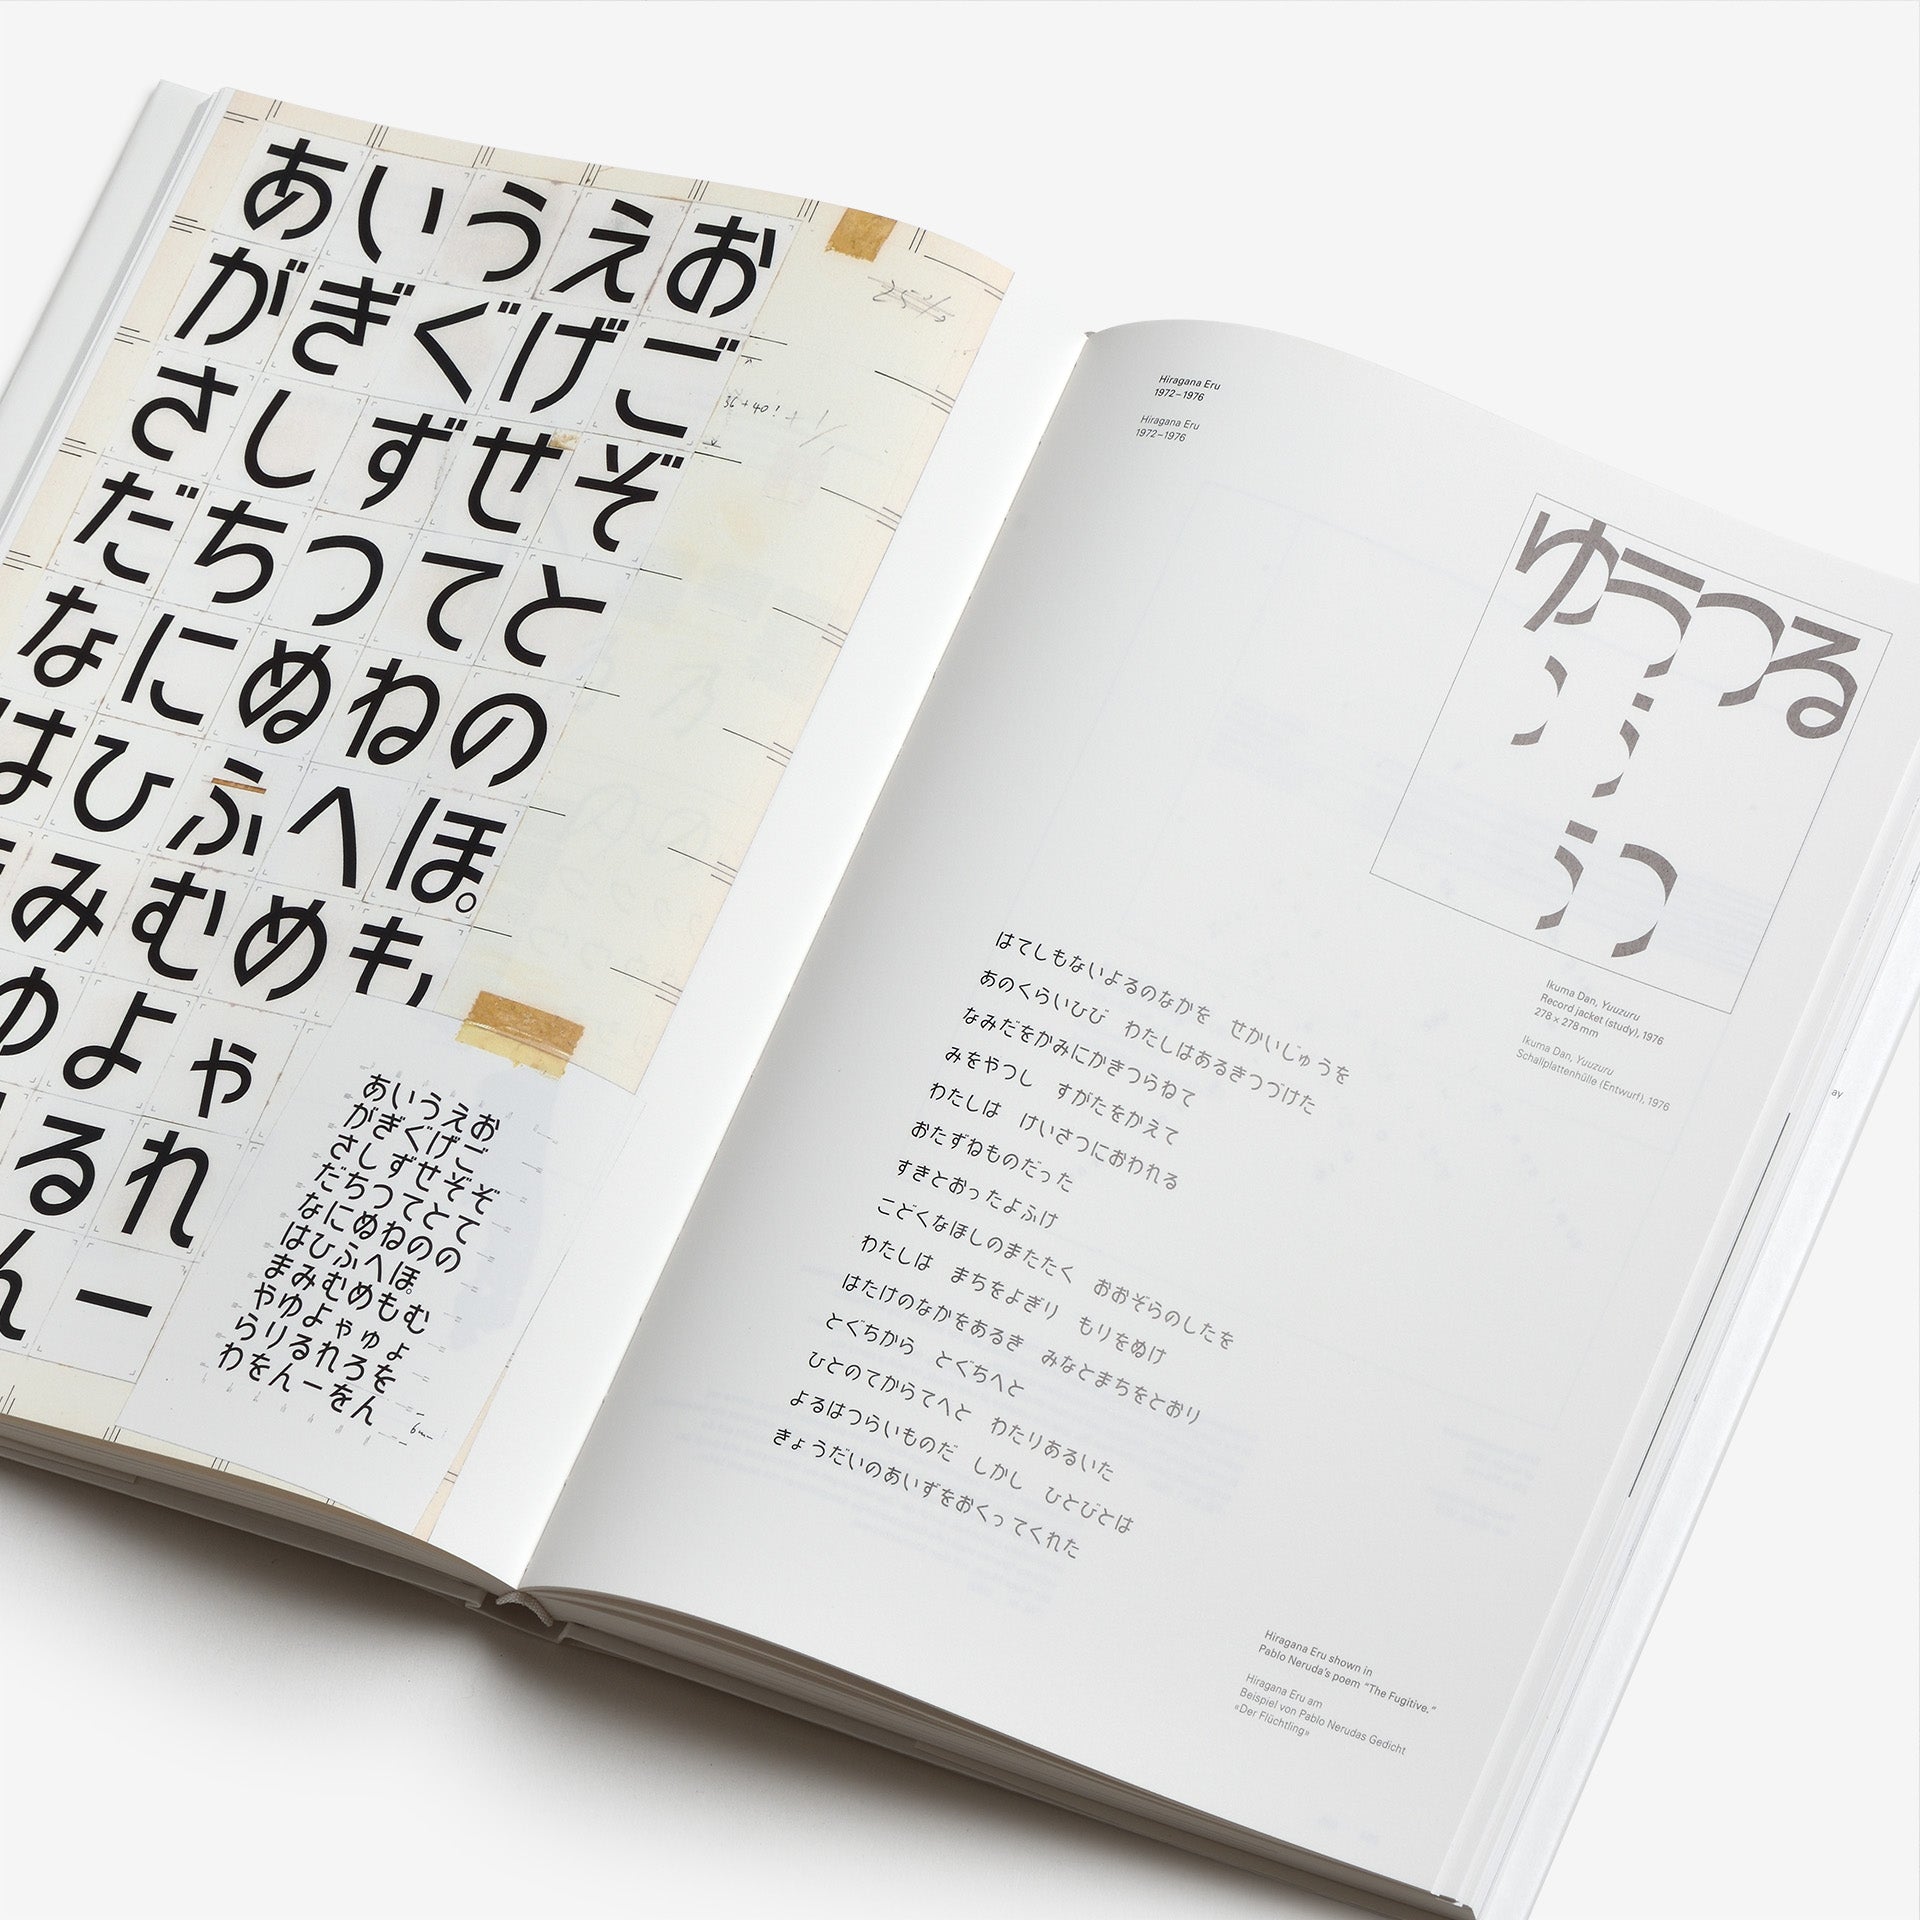 あいうえお
がぎぐげご
さしずせぞ
だちつてと
なにぬねの
はひふへほ。
みむめも、
ゆよゃ
るれ
んー
36+40
あいうえお
がぎぐげご
さしずせぞぞ
だちつてとて
なにぬねのの
はひふへほ。
まみむめもむ
やゆよゃゅょ
らりるれろを
わをんーをん
Hiragana Eru
1972–1976
Hiragana Eru
1972–1976
ゆうつる
Ikuma Dan, Yuuzuru
Record jacket (study), 1976
278 × 278 mm
Ikuma Dan, Yuuzuru
Schallplattenhülle (Entwurf), 1976
はてしもないよるのなかを　せかいじゅうを
あのくらいひび　わたしはあるきつづけた
なみだをかみにかきつらねて
みをやつし　すがたをかえて
わたしは　けいさつにおわれる
おたずねものだった
すきとおったよふけ
こどくなほしのまたたく　おおぞらのしたを
わたしは　まちをよぎり　もりをぬけ
はたけのなかをあるき　みなとまちをとおり
とぐちから　とぐちへと
ひとのてからてへと　わたりあるいた
よるはつらいものだ　しかし　ひとびとは
きょうだいのあいずをおくってくれた
Hiragana Eru shown in
Pablo Neruda's poem “The Fugitive.”
Hiragana Eru am
Beispiel von Pablo Nerudas Gedicht
«Der Flüchtling»
ay